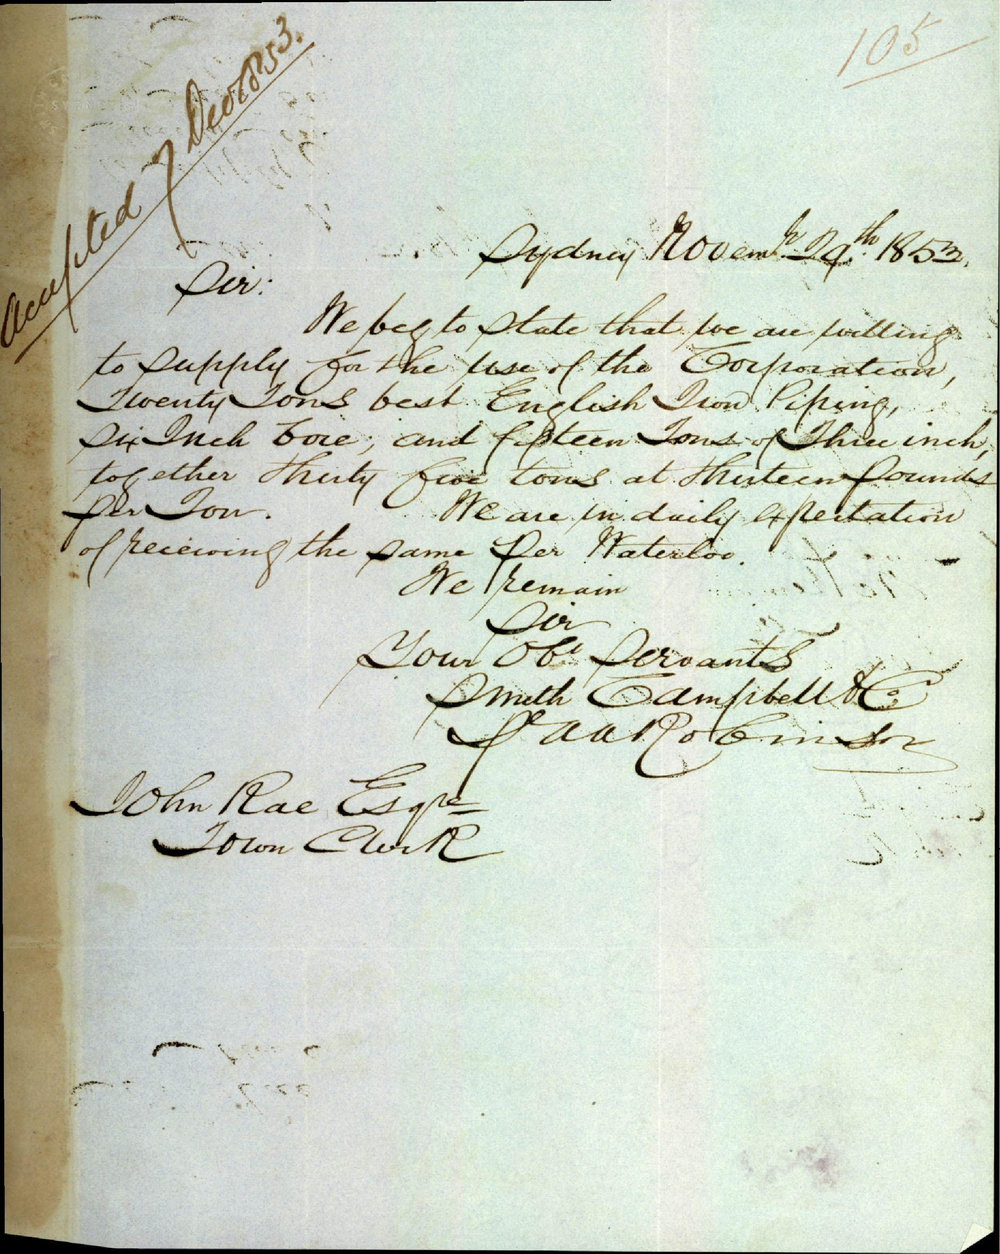 105
Accepted 7 Decr 1853.
Sydney Novemr. 24th. 1853.
Sir:
We beg to state that we are willing
to supply for the use of the Corporation,
Twenty Tons best English Iron Piping,
Six Inch bore; and fifteen Tons of Three inch,
together thirty five tons at thirteen pounds
per Ton. We are in daily expectation
of receiving the same per Waterloo.
We remain
Sir
Your Obt Servants
Smith Campbell & Co
Pr A A Robinson
John Rae Esqre
Town Clerk